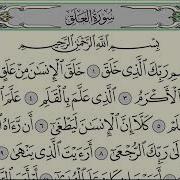 سُورَةُ العَلَقِ
بِسْمِ ٱللَّهِ ٱلرَّحْمَٰنِ ٱلرَّحِيمِ
رَبِّكَ ٱلَّذِى خَلَقَ ١ خَلَقَ ٱلْإِنسَٰنَ مِنْ عَلَقٍ
ٱلْأَكْرَمُ ٣ ٱلَّذِى عَلَّمَ بِٱلْقَلَمِ ٤ عَلَّمَ
٥ كَلَّآ إِنَّ ٱلْإِنسَٰنَ لَيَطْغَىٰٓ ٦ أَن رَّءَاهُ
إِلَىٰ رَبِّكَ ٱلرُّجْعَىٰٓ ٨ أَرَءَيْتَ ٱلَّذِى يَنْهَىٰ ٩